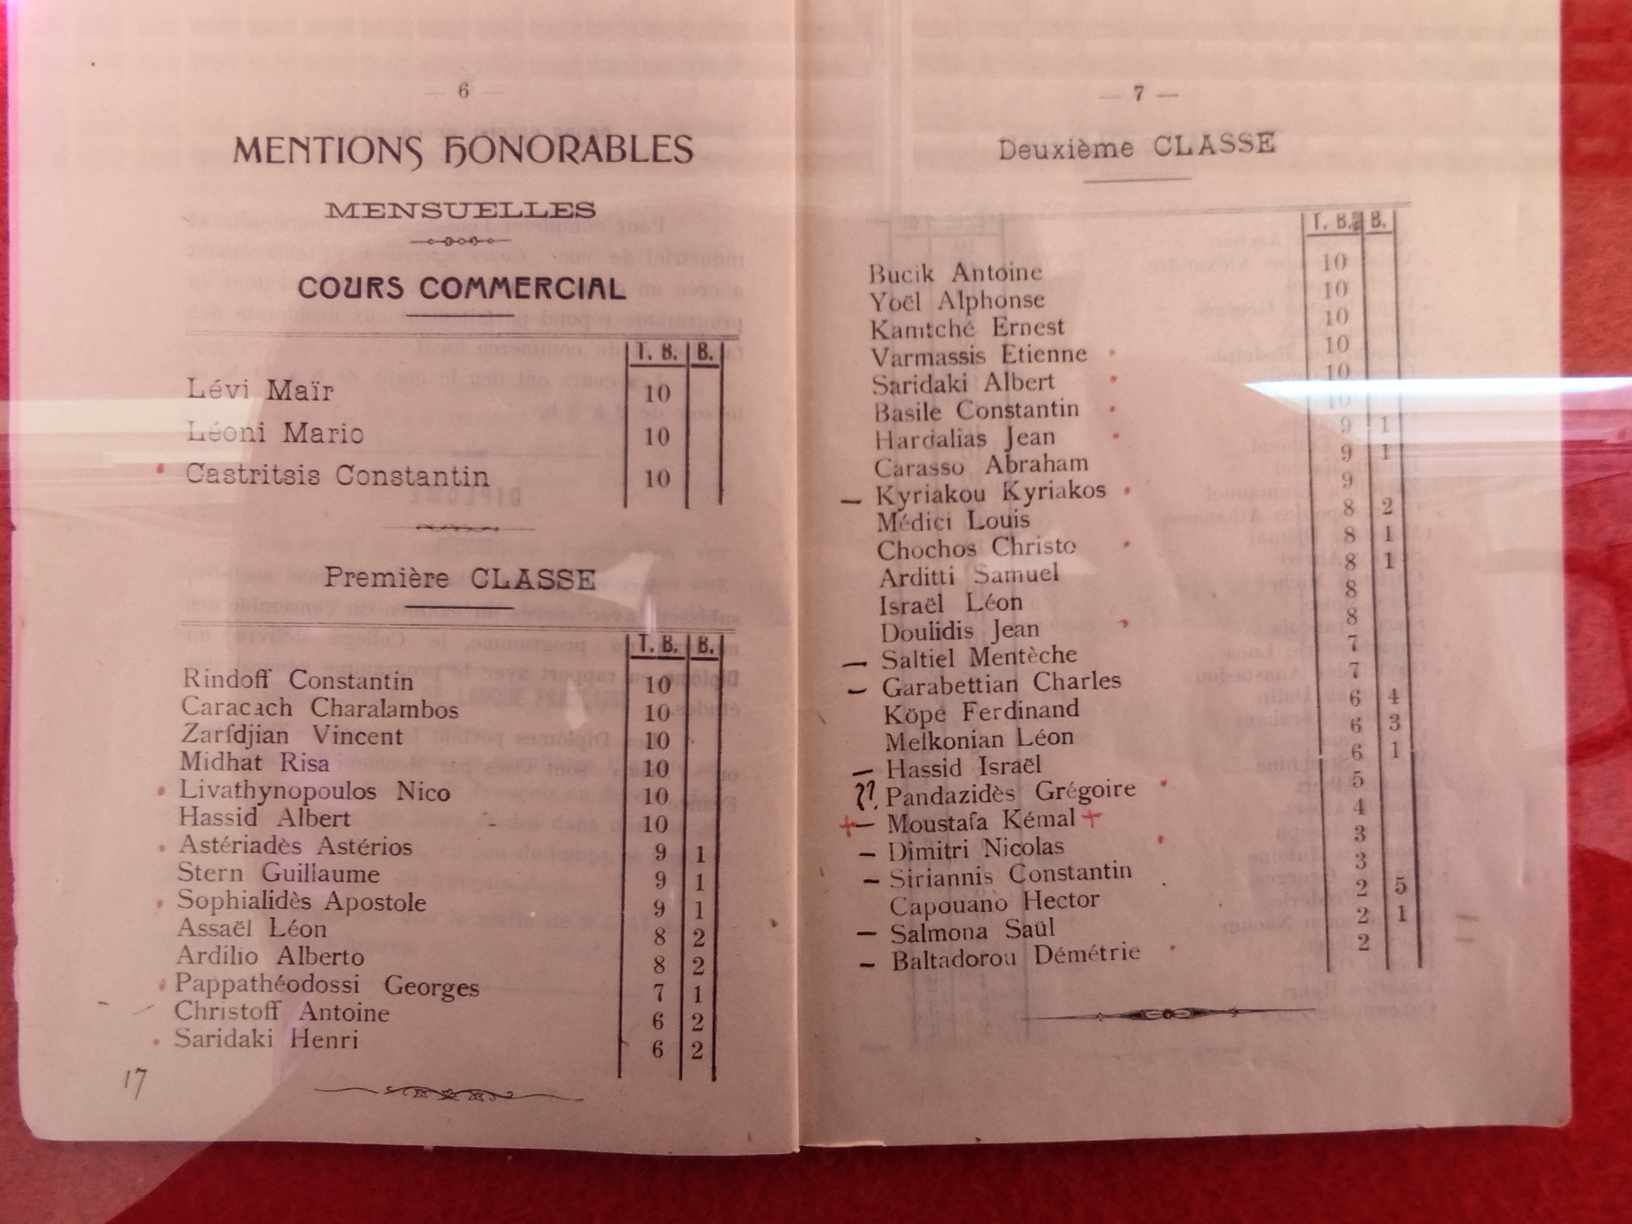 — 6 —
MENTIONS HONORABLES
MENSUELLES
COURS COMMERCIAL
T. B. B.
Lévi Maïr 10
Léoni Mario 10
Castritsis Constantin 10
Première CLASSE
T. B. B.
Rindoff Constantin 10
Caracach Charalambos 10
Zarfdjian Vincent 10
Midhat Risa 10
Livathynopoulos Nico 10
Hassid Albert 10
Astériadès Astérios 9 1
Stern Guillaume 9 1
Sophialidès Apostole 9 1
Assaël Léon 8 2
Ardilio Alberto 8 2
Pappathéodossi Georges 7 1
Christoff Antoine 6 2
Saridaki Henri 6 2
17
— 7 —
Deuxième CLASSE
T. B. B.
Bucik Antoine 10
Yoël Alphonse 10
Kamtché Ernest 10
Varmassis Etienne 10
Saridaki Albert 10
Basile Constantin 10
Hardalias Jean 9 1
Carasso Abraham 9 1
— Kyriakou Kyriakos 9
Médici Louis 8 2
Chochos Christo 8 1
Arditti Samuel 8 1
Israël Léon 8
Doulidis Jean 8
— Saltiel Mentèche 7
— Garabettian Charles 7
Köpe Ferdinand 6 4
Melkonian Léon 6 3
— Hassid Israël 6 1
?? Pandazidès Grégoire 5
+— Moustafa Kémal + 4
— Dimitri Nicolas 3
— Siriannis Constantin 3
Capouano Hector 2 5
— Salmona Saül 2 1
— Baltadorou Démétrie 2